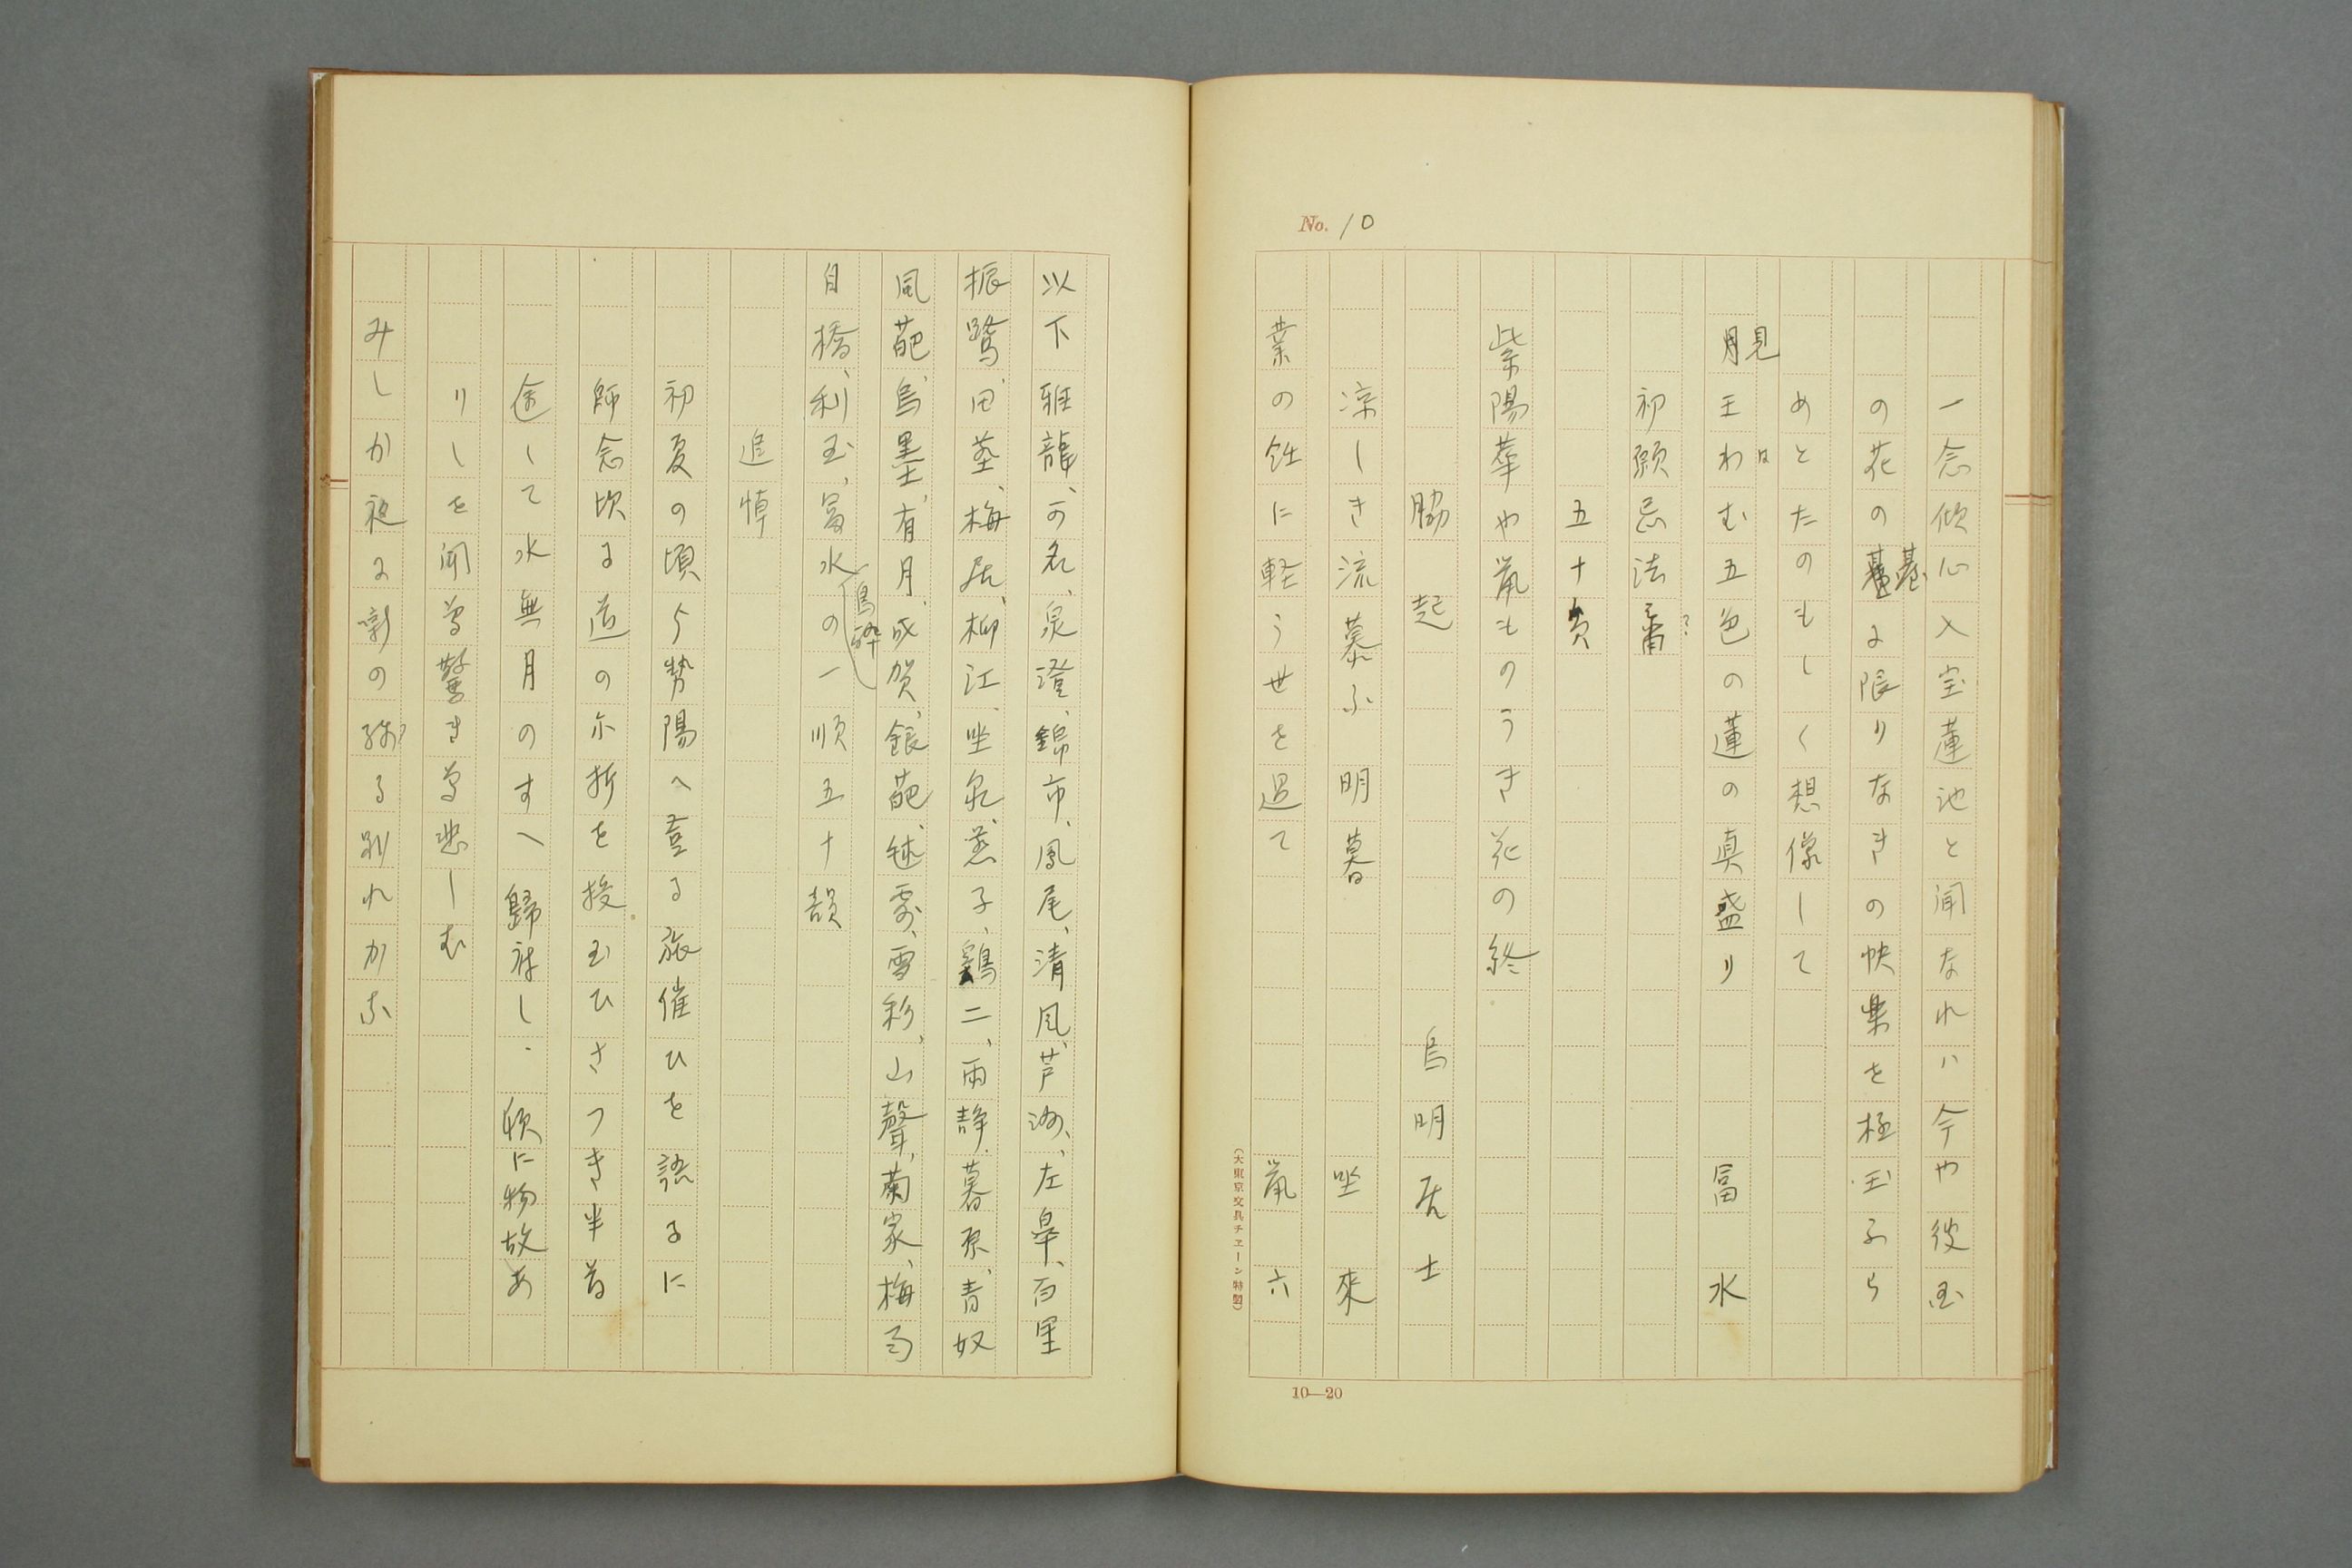 No. 10
一念傾心入宝蓮池と聞なれハ今や彼国
の花の臺に限りなきの快楽を極玉ふら
臺
めとたのもしく想像して
見
月王わむ五色の蓮の真盛り 冨水
は
初願忌法
五十員
紫陽華や嵐ものうき花の終
脇起 鳥明居士
凉しき流慕ふ明暮 坐來
葉の蝕に軽う世を過て 嵐六
(大東京文具チエーン特製)
10—20
以下雅龍、可名、泉澄、錦市、鳳尾、清風、芦洲、左皐、百里
振鷺、田茎、梅居、柳江、坐泉、燕子、鶏二、雨静、暮原、青奴
風葩、烏墨、有月、成賀、銀葩、毬雲、雪彩、山聲、菊家、梅
自橋、利玉、冨水の一順五十韻
追悼
初夏の頃より勢陽へ登る旅催ひを語るに
師念比に道の示折を授玉ひさつき半首
途して水無月のすへ歸祥し、頃に物故あ
りしを聞尚驚き尚悲しむ
みしか夜に噺の残る別れかな